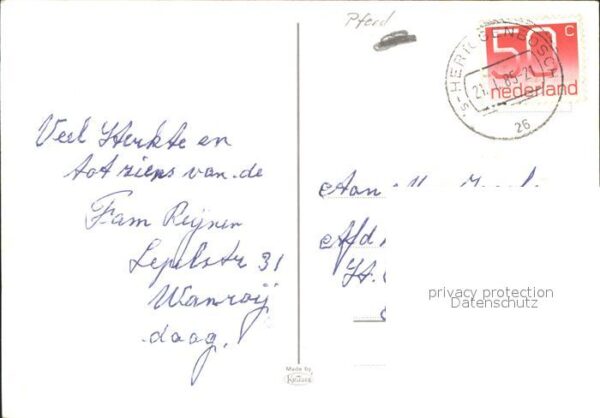 Pferd
's-HERTOGENBOSCH
21.1.85-21
26
50 c
nederland
Veel Sterkte en
tot ziens van de
Fam Reijnen
Lepelstr 31
Wanroij
daag.
Aan
Afd
St.
privacy protection
Datenschutz
Made by